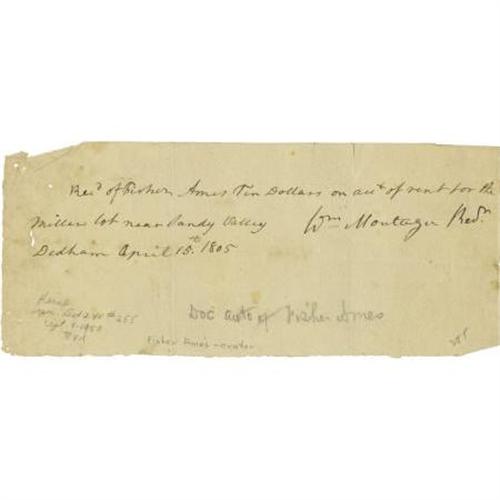 Rec'd of Fisher Ames Ten Dollars on acct of rent for the
Miller lot near Sandy Valley Wm Montague Rec'r
Dedham April 15th. 1805
Sept. 9. 1950
Doc auto of Fisher Ames
Fisher Ames - orator